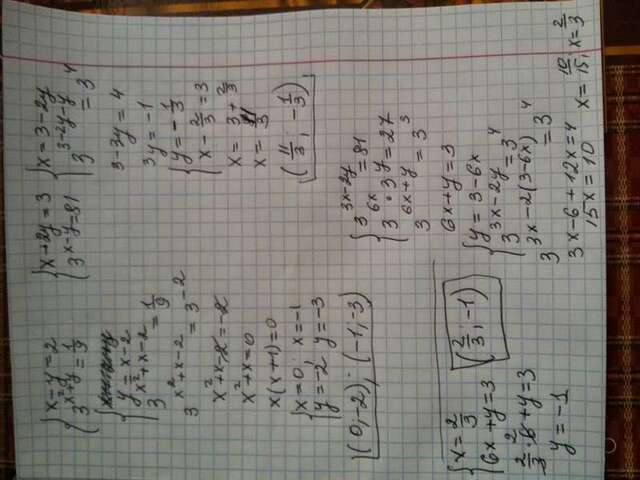 { x - y = 2
3^(x²+y) = 1/9
{ y = x - 2
3^(x²+x-2) = 1/9
3^(x²+x-2) = 3^(-2)
x² + x - 2 = -2
x² + x = 0
x(x+1) = 0
{ x = 0, x = -1
y = -2 y = -3
(0,-2); (-1,-3)
{ x + 2y = 3
3^(x-y) = 81
{ x = 3 - 2y
3^(3-2y-y) = 3^4
3 - 3y = 4
3y = -1
{ y = -1/3
x - 2/3 = 3
x = 3 + 2/3
x = 11/3
(11/3; -1/3)
{ 3^(3x-2y) = 81
3^(6x) · 3^y = 27
3^(6x+y) = 3^3
6x + y = 3
{ y = 3 - 6x
3^(3x-2y) = 3^4
3^(3x-2(3-6x)) = 3^4
3x - 6 + 12x = 4
15x = 10 x = 10/15; x = 2/3
{ x = 2/3
6x + y = 3
2/3 · 6 + y = 3
y = -1
(2/3; -1)